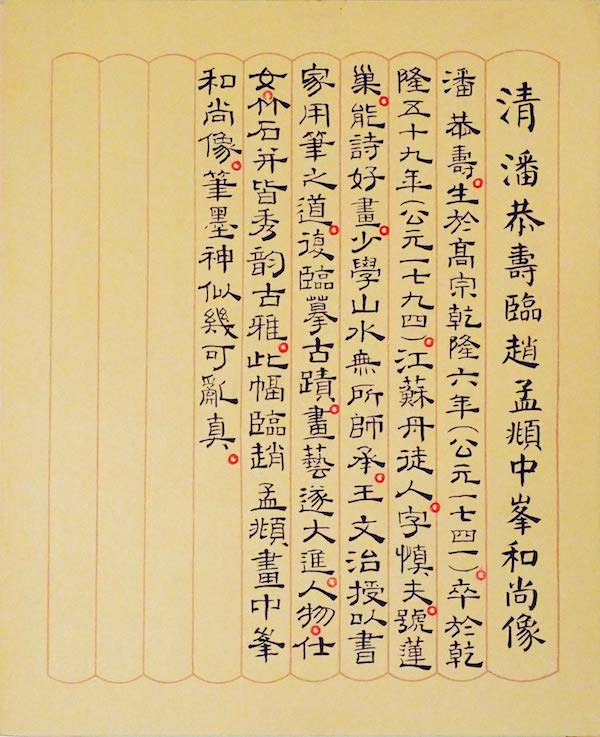 清 潘恭壽臨趙孟頫中峯和尚像
潘恭壽。生於髙宗乾隆六年(公元一七四一)。卒於乾
隆五十九年(公元一七九四)。江蘇丹徒人。字慎夫。號蓮
巢。能詩好畫。少學山水無所師承。王文治授以書
家用筆之道。復臨摹古蹟。畫藝遂大進。人物。仕
女。竹石并皆秀韵古雅。此幅臨趙孟頫畫中峯
和尚像。筆墨神似幾可亂真。